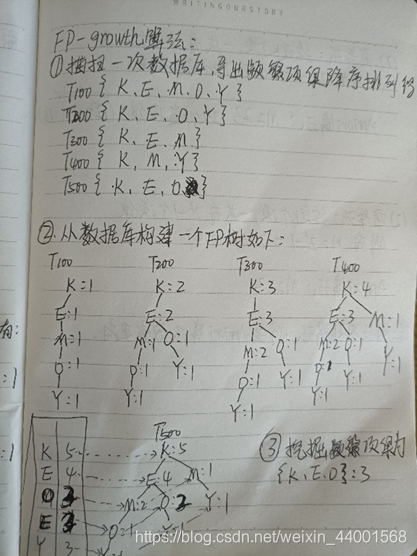 FP-growth算法:
①扫描一次数据库,导出频繁项集降序排列得
T100{K, E, M, O, Y}
T200{K, E, O, Y}
T300{K, E, M}
T400{K, M, Y}
T500{K, E, O}
②从数据库构建一个FP树如下:
T100 T200 T300 T400
K:1 K:2 K:3 K:4
E:1 E:2 E:3 E:3 M:1
M:1 M:1 O:1 M:2 O:1 M:2 O:1 Y:1
O:1 O:1 Y:1 O:1 Y:1 O:1 Y:1
Y:1 Y:1 Y:1 Y:1
T500
K 5 K:5 ③挖掘频繁项集为
E 4 E:4 M:1 {K,E,O}:3
O 3 M:2 O:2 Y:1
3 O:1 Y:1
Y 3
https://blog.csdn.net/weixin_44001568